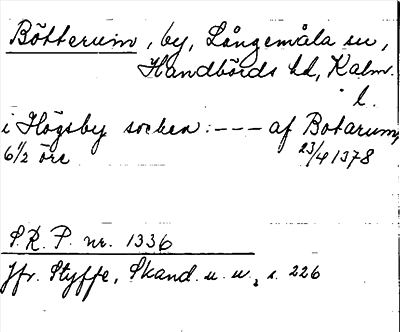 Bötterum, by, Långemåla sn,
Handbörds hd, Kalm.
l.
i Högsby socken: --- af Botarum,
6 1/2 öre 23/4 1378
S.R.P. nr. 1336
Jfr. Styffe, Skand. u. u., s. 226